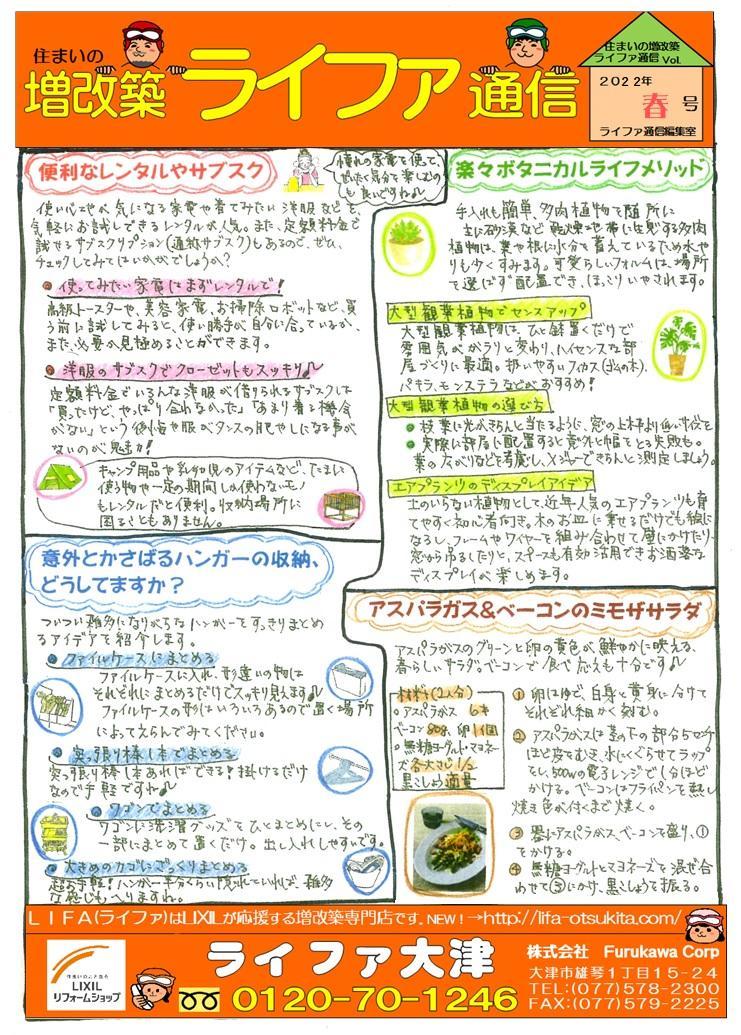 住まいの
増改築 ライファ 通信
住まいの増改築
ライファ通信 Vol.
2022年
春 号
ライファ通信編集室
便利なレンタルやサブスク
憧れの家電を使って、
ぜいたく気分を楽しむの
も良いですね♪
使い心地が気になる家電や着てみたい洋服などを、
気軽にお試しできるレンタルが人気。また、定額料金で
試せるサブスクリプション(通称サブスク)もあるので、ぜひ、
チェックしてみてはいかがでしょうか?
● 使ってみたい家電はまずレンタルで!
高級トースターや、美容家電、お掃除ロボットなど、買
う前に試してみると、使い勝手が自分に合っているか、
また、必要か見極めることができます。
● 洋服のサブスクでクローゼットもスッキリ♪
定額料金でいろんな洋服が借りられるサブスクは
「買ったけど、やっぱり合わなかった」「あまり着る機会
がない」という後悔や服がタンスの肥やしになる事が
ないのが魅力!
キャンプ用品や乳幼児のアイテムなど、たまに
使う物や一定の期間しか使わないモノ
もレンタルだと便利。収納場所に
困ることもありません。
楽々ボタニカルライフメソッド
手入れも簡単、多肉植物で随所に
主に砂漠など乾燥地帯に生息する多肉
植物は、葉や根に水分を蓄えているため水や
りも少なくすみます。可愛らしいフォルムは、場所
を選ばず配置でき、ほっこりいやされます。
大型観葉植物でセンスアップ
大型観葉植物は、ひと鉢置くだけで
雰囲気がガラリと変わり、ハイセンスな部
屋づくりに最適。扱いやすいフィカス(ゴムの木)、
パキラ、モンステラなどがおすすめ!
大型観葉植物の選び方
● 枝葉に光がきちんと当たるように、窓の上枠より低い寸法を
● 実際に部屋に配置すると意外と幅をとる失敗も。
葉の広がりなどを考慮し、メジャーできちんと測定しましょう。
エアプランツのディスプレイアイデア
土のいらない植物として、近年人気のエアプランツも育
てやすく初心者向き。木のお皿に乗せるだけでも絵に
なるし、フレームやワイヤーを組み合わせて壁にかけたり、
窓から吊るしたりと、スペースも有効活用できお洒落な
ディスプレイが楽しめます。
意外とかさばるハンガーの収納、
どうしてますか?
ついつい雑多になりがちなハンガーをすっきりまとめ
るアイデアを紹介します。
● ファイルケースにまとめる
ファイルケースに入れ、形違いの物は
それぞれにまとめるだけでスッキリ見えます♪
ファイルケースの形はいろいろあるので置く場所
によってえらんでみてください。
● 突っ張り棒1本でまとめる
突っ張り棒1本あればできる!掛けるだけ
なので手軽ですね♪
● ワゴンでまとめる
ワゴンに洗濯グッズをひとまとめにし、その
一部にまとめて置くだけ。出し入れしやすいです。
● 大きめのカゴにざっくりまとめる
超お手軽!ハンガー半分くらい隠れていれば、雑多
な感じもへりますね。
アスパラガス&ベーコンのミモザサラダ
アスパラガスのグリーンと卵の黄色が鮮やかに映える、
春らしいサラダ。ベーコンで食べ応えも十分です♪
材料(2人分)
・アスパラガス 6本
・ベーコン 80g、卵1個
・無糖ヨーグルト・マヨネー
ズ各大さじ1/2
・黒こしょう適量
① 卵はゆで、白身と黄身に分けて
それぞれ細かく刻む。
② アスパラガスは茎の下の部分5センチ
ほど皮をむき、水にくぐらせてラップ
をし、500wの電子レンジで1分ほど
かける。ベーコンはフライパンを熱し
焼き色が付くまで焼く。
③ 器にアスパラガス、ベーコンを盛り、①
をかける。
④ 無糖ヨーグルトとマヨネーズを混ぜ合
わせて③にかけ、黒こしょうを振る。
LIFA(ライファ)はLIXILが応援する増改築専門店です。NEW!→http://lifa-otsukita.com/
住まいのことなら
LIXIL
リフォームショップ
ライファ大津
0120-70-1246
株式会社 Furukawa Corp
大津市雄琴1丁目15-24
TEL:(077)578-2300
FAX:(077)579-2225